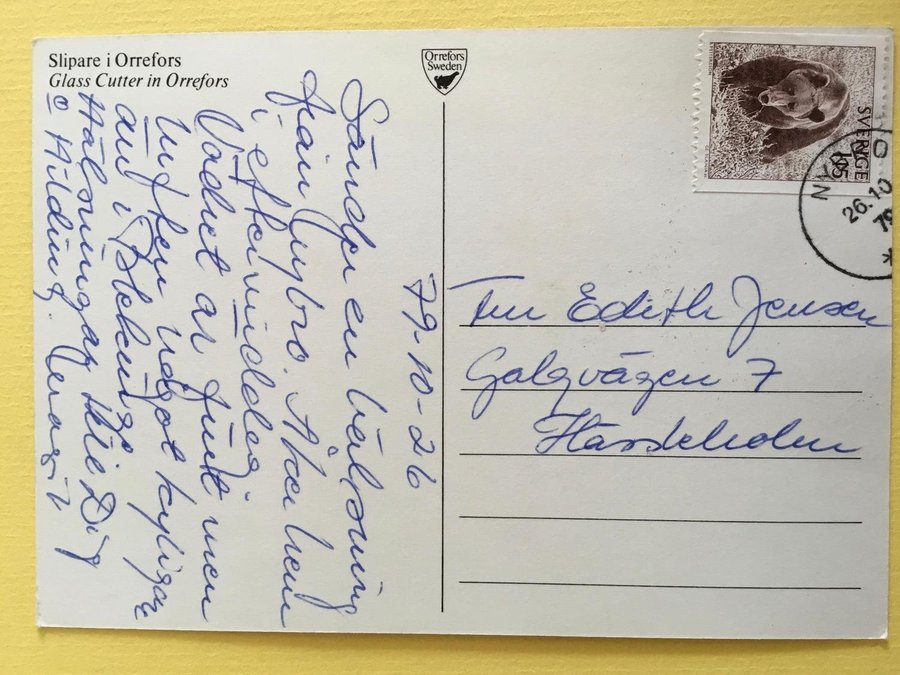 Slipare i Orrefors
Glass Cutter in Orrefors
Orrefors
Sweden
SVERIGE
1.15
NY O
26.10
79
79-10-26
Sänder en hälsning
från Nybro. Åker hem
i eftermiddag.
Vädret är fint men
luften något kyligare
än i Blekinge
Hälsningar till Dig
o Hilding.
Edith Jensen
Galgvägen 7
Hässleholm